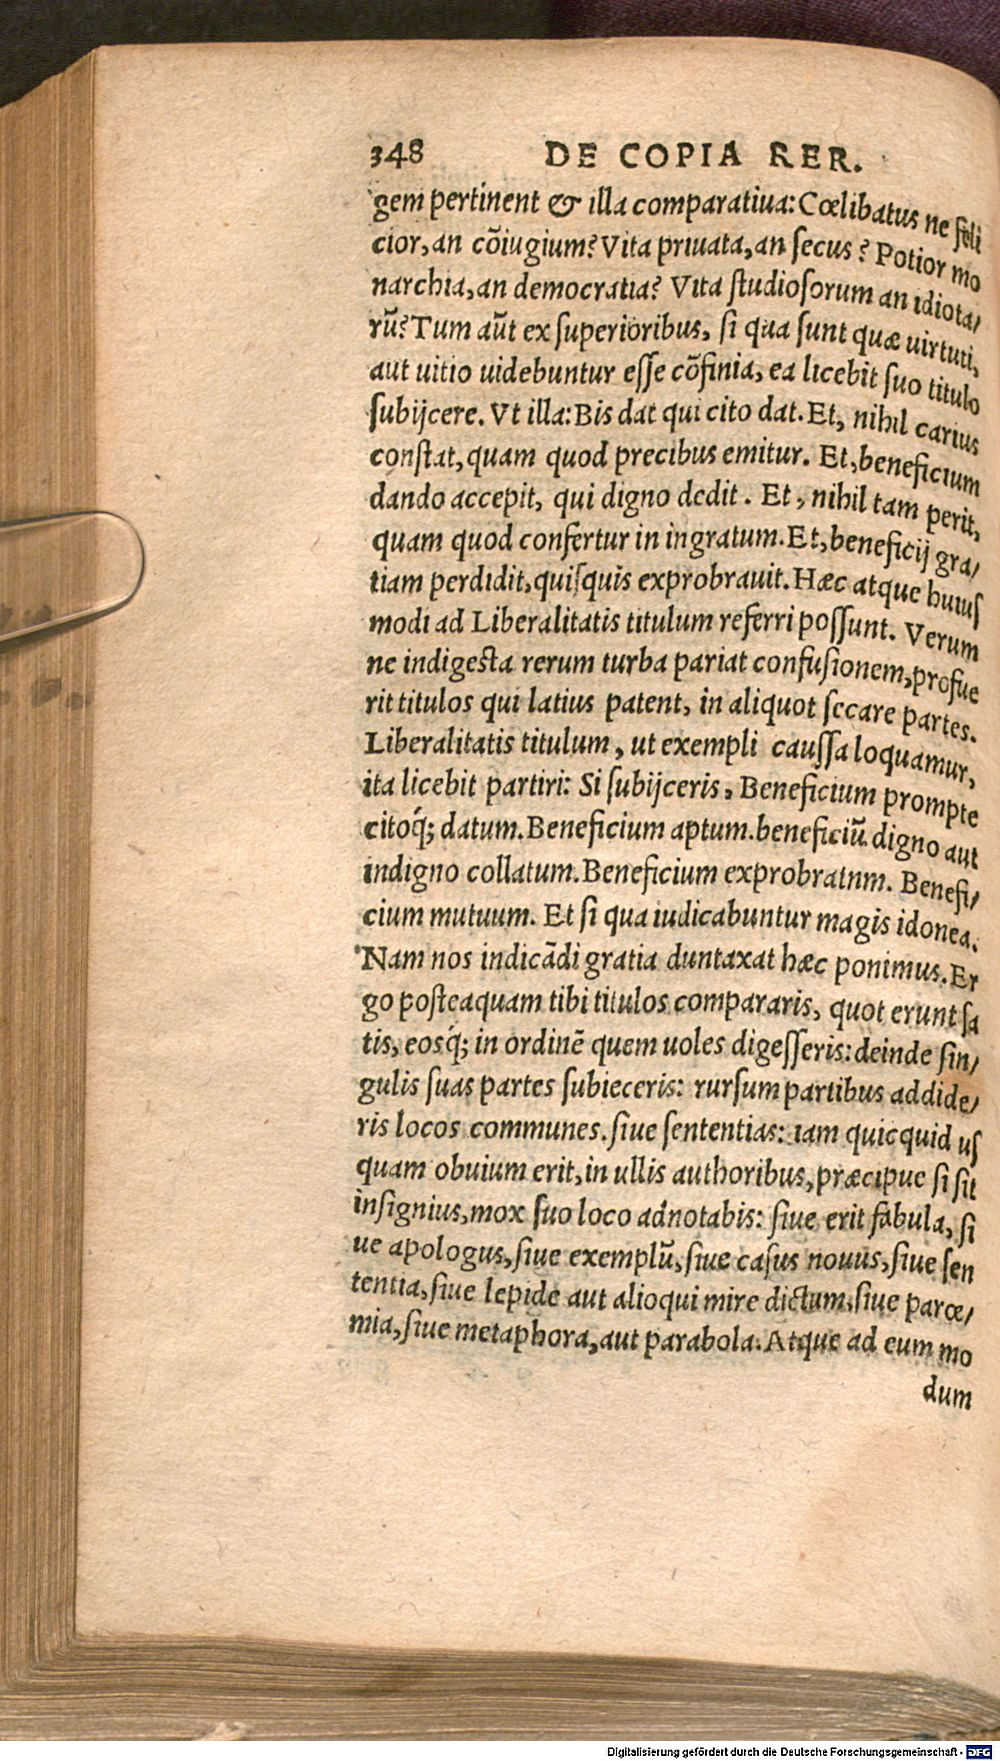 348 DE COPIA RER.
gem pertinent & illa comparatiua: Cœlibatus ne feli
cior, an cõiugium? Vita priuata, an secus? Potior mo
narchia, an democratia? Vita studiosorum an idiota/
rũ? Tum aũt ex superioribus, si qua sunt quæ uirtuti,
aut uitio uidebuntur esse cõfinia, ea licebit suo titulo
subijcere. Vt illa: Bis dat qui cito dat. Et, nihil carius
constat, quam quod precibus emitur. Et, beneficium
dando accepit, qui digno dedit. Et, nihil tam perit,
quam quod confertur in ingratum. Et, beneficij gra/
tiam perdidit, quisquis exprobrauit. Hæc atque huius
modi ad Liberalitatis titulum referri possunt. Verum
ne indigesta rerum turba pariat confusionem, profue
rit titulos qui latius patent, in aliquot secare partes.
Liberalitatis titulum, ut exempli caussa loquamur,
ita licebit partiri: Si subijceris, Beneficium prompte
citoq́; datum. Beneficium aptum. beneficiũ digno aut
indigno collatum. Beneficium exprobratnm. Benefi/
cium mutuum. Et si qua iudicabuntur magis idonea.
Nam nos indicãdi gratia duntaxat hæc ponimus. Er
go posteaquam tibi titulos compararis, quot erunt sa
tis, eosq́; in ordinẽ quem uoles digesseris: deinde sin/
gulis suas partes subieceris: rursum partibus addide/
ris locos communes. siue sententias: iam quicquid us
quam obuium erit, in ullis authoribus, præcipue si sit
insignius, mox suo loco adnotabis: siue erit fabula, si
ue apologus, siue exemplũ, siue casus nouus, siue sen
tentia, siue lepide aut alioqui mire dictum, siue parœ/
mia, siue metaphora, aut parabola. Atque ad eum mo
dum
Digitalisierung gefördert durch die Deutsche Forschungsgemeinschaft - DFG